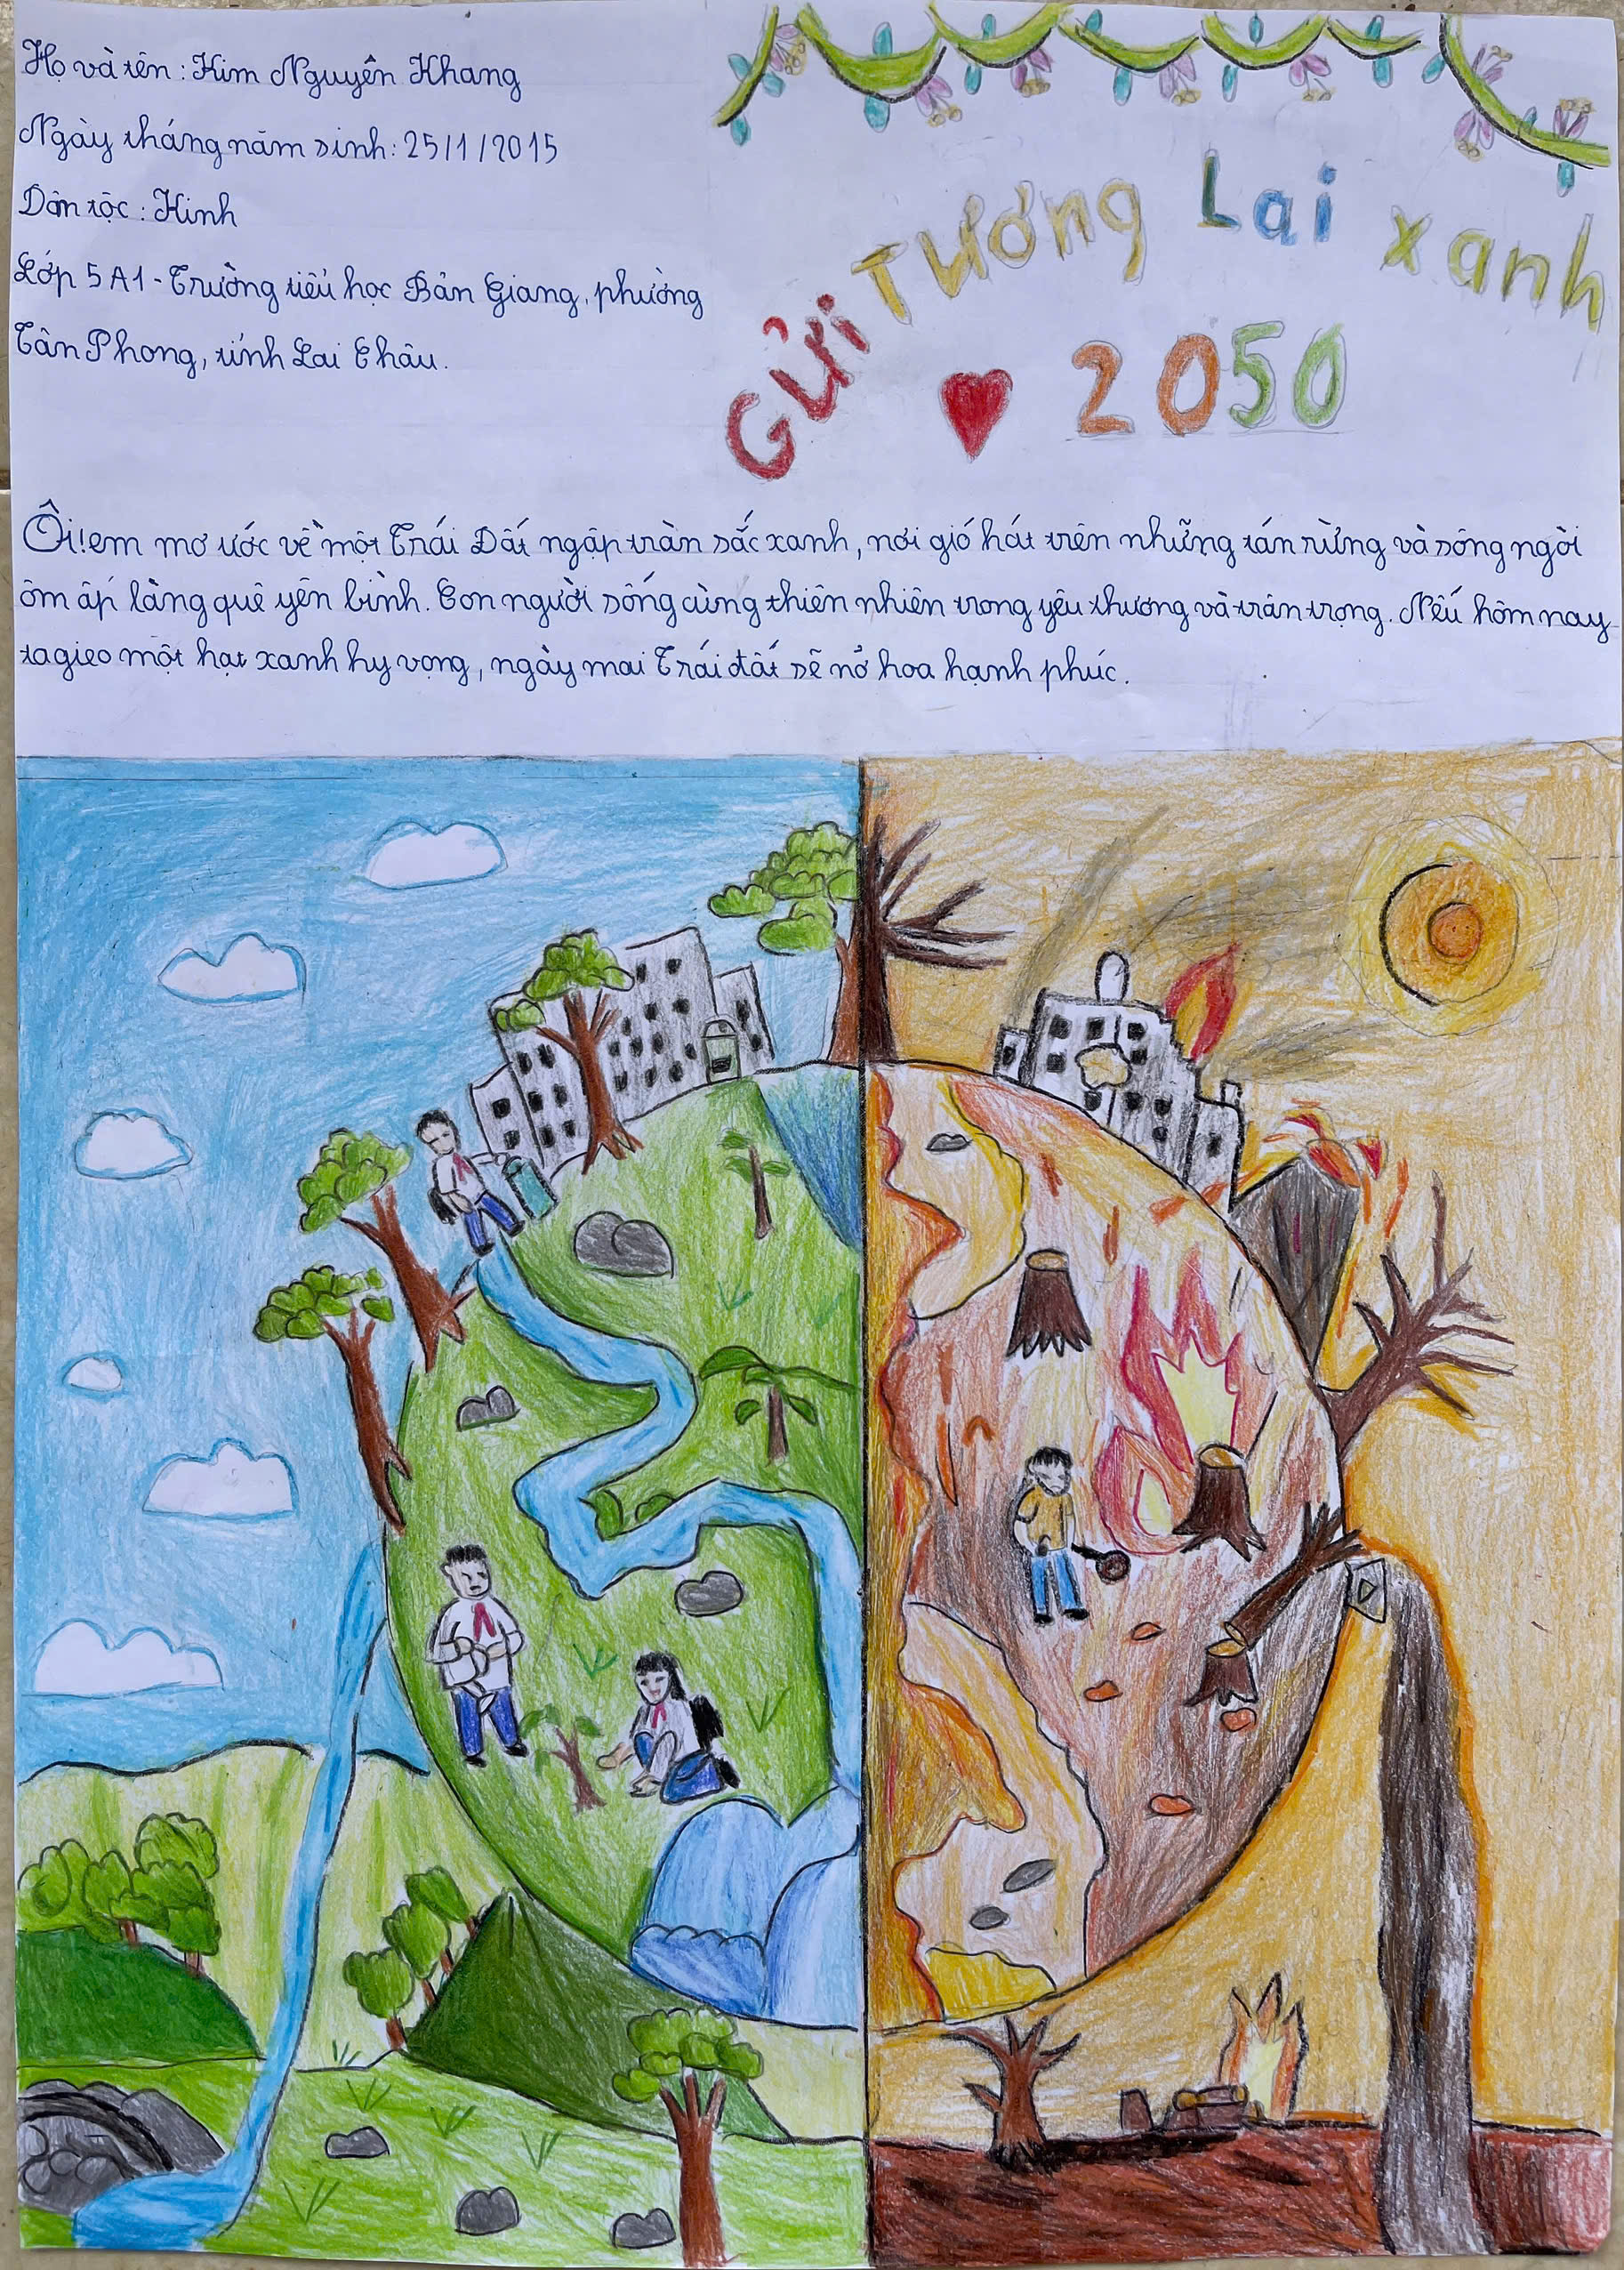 Họ và tên: Kim Nguyên Khang
Ngày tháng năm sinh: 25/1/2015
Dân tộc: Kinh
Lớp 5A1 - Trường tiểu học Bản Giang, phường
Tân Phong, tỉnh Lai Châu.
Gửi Tương Lai xanh
2050
Ôi! em mơ ước về một Trái Đất ngập tràn sắc xanh, nơi gió hát trên những tán rừng và sông ngòi
ôm ấp làng quê yên bình. Con người sống cùng thiên nhiên trong yêu thương và trân trọng. Nếu hôm nay
ta gieo một hạt xanh hy vọng, ngày mai Trái đất sẽ nở hoa hạnh phúc.